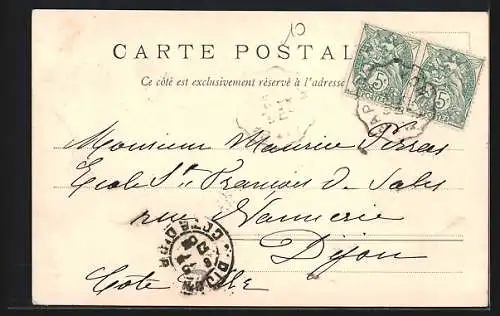 10
CARTE POSTALE
Ce côté est exclusivement réservé à l'adresse
5c 5c
POSTES
Monsieur Maurice
Ecole St François de Sales
rue Vannerie
Dijon
Côte
DIJON
COTE D'OR